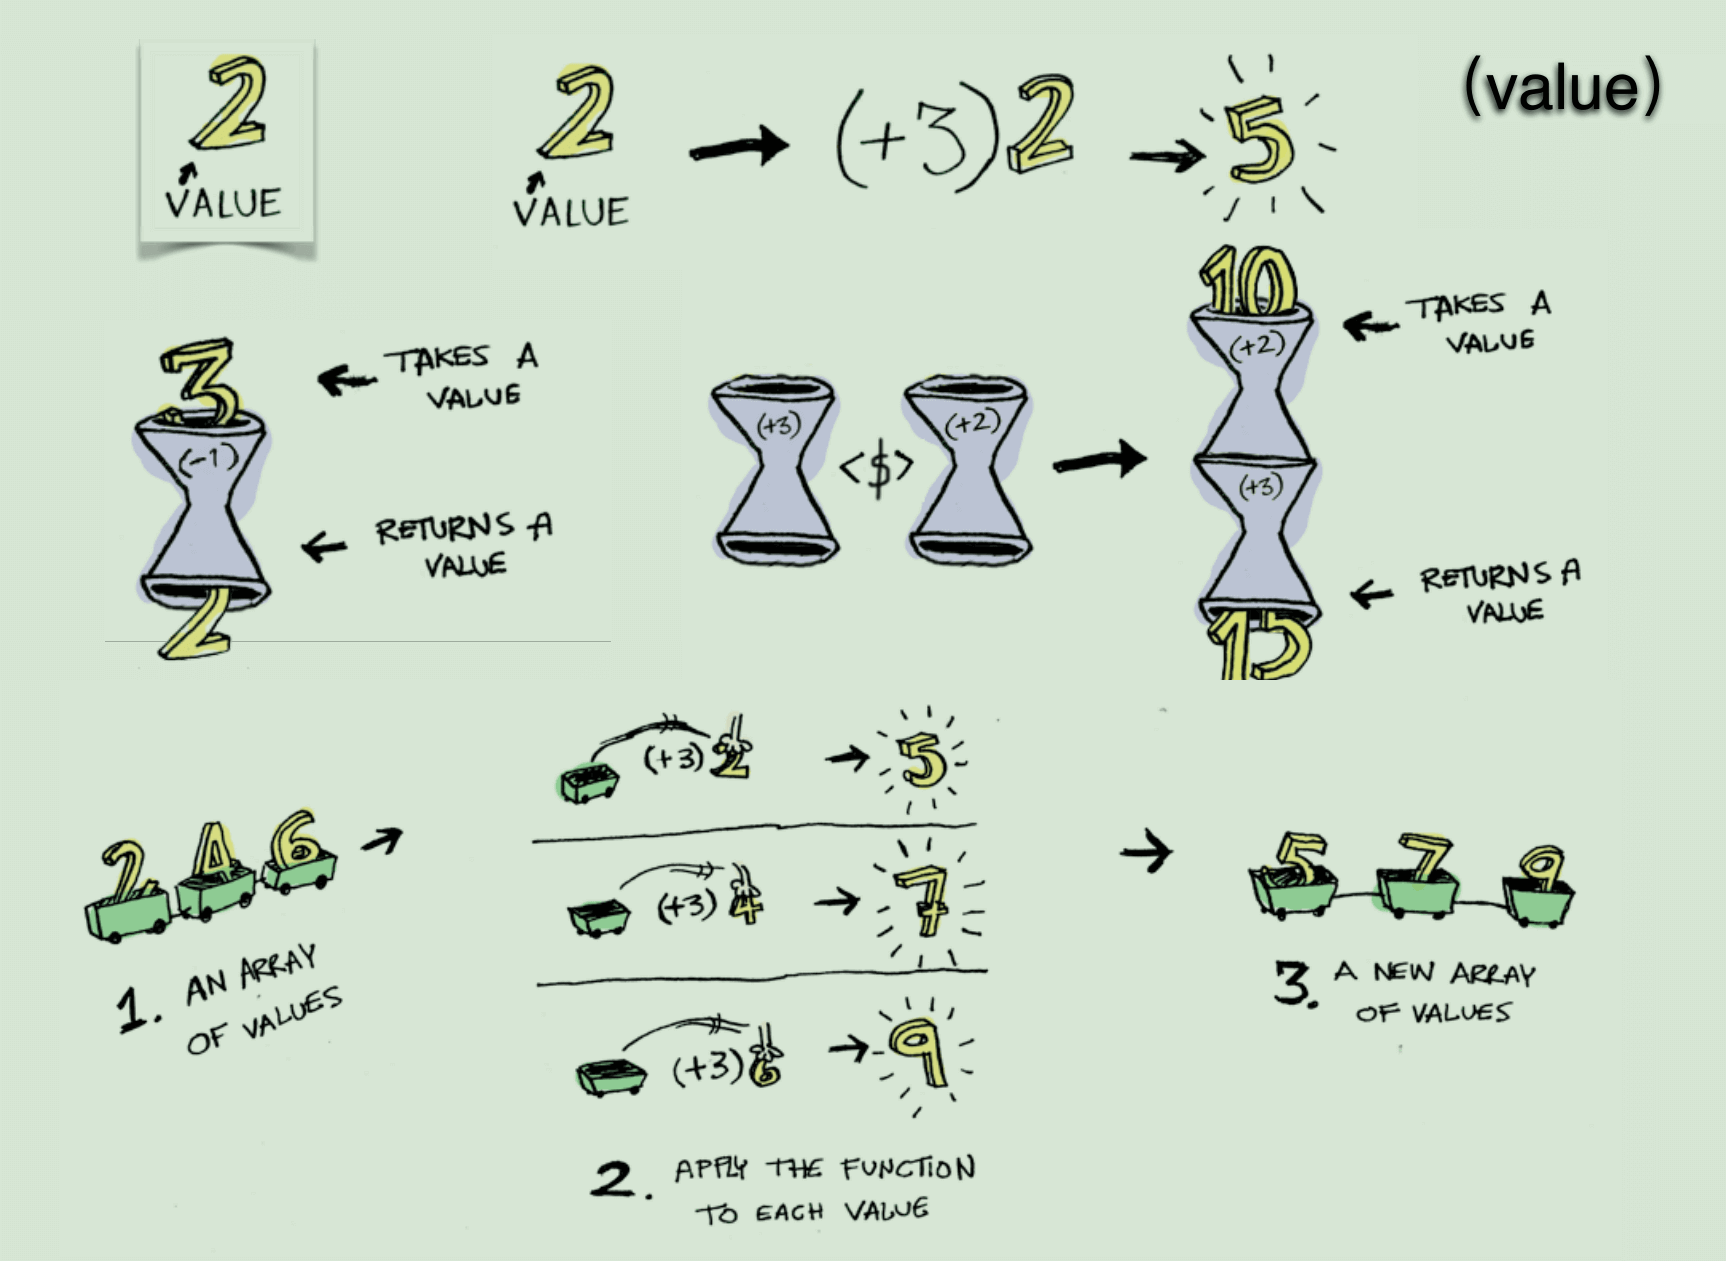 2
VALUE
2
VALUE
(+3) 2
5
(value)
3
(-1)
2
TAKES A
VALUE
RETURNS A
VALUE
(+3)
<$>
(+2)
10
(+2)
(+3)
15
TAKES A
VALUE
RETURNS A
VALUE
2 4 6
1. AN ARRAY
OF VALUES
(+3) 2
5
(+3) 4
7
(+3) 6
9
2. APPLY THE FUNCTION
TO EACH VALUE
5 7 9
3. A NEW ARRAY
OF VALUES